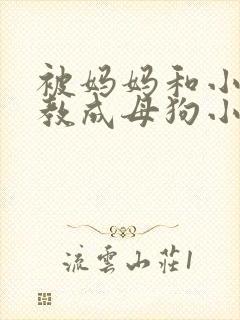 被妈妈和小
教成母狗小
流雲山莊1